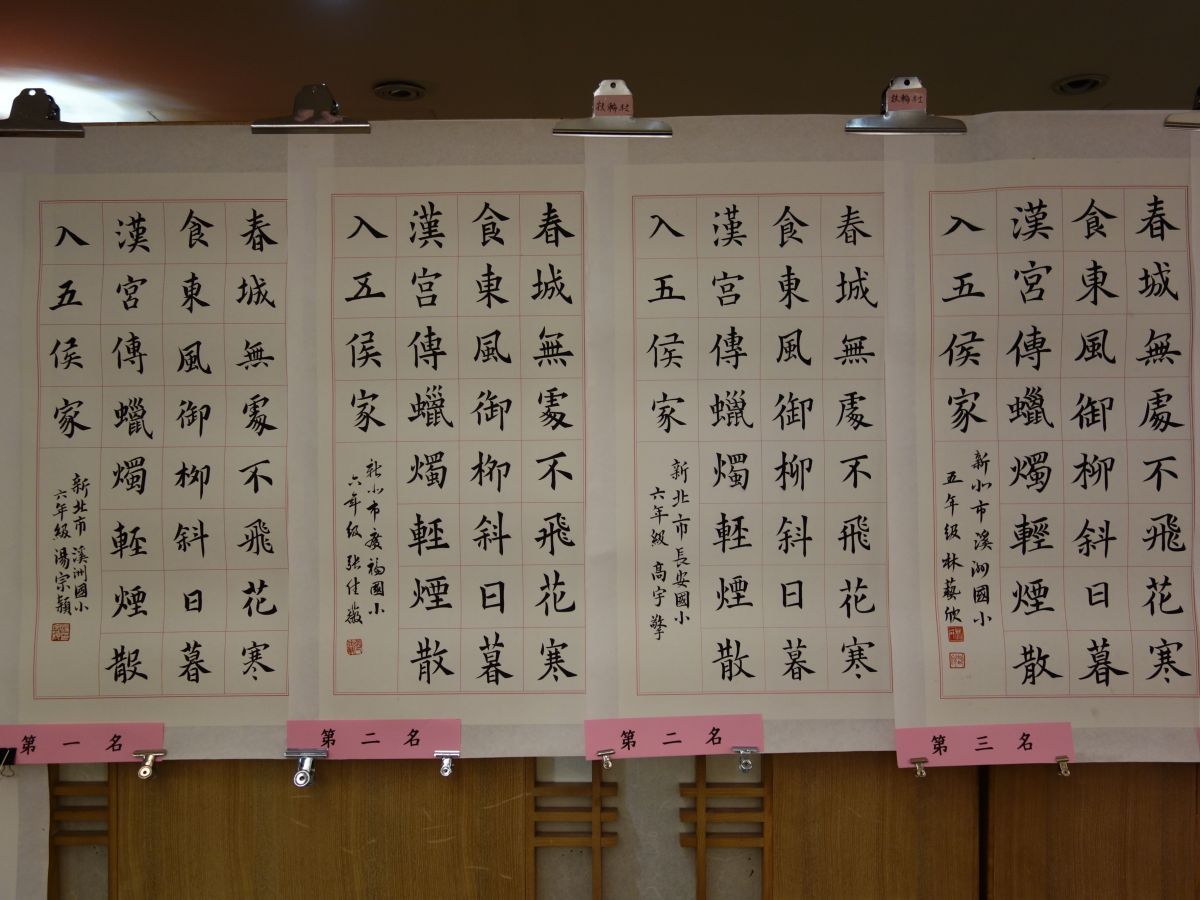 扶輪社
扶輪社
春城無處不飛花寒
食東風御柳斜日暮
漢宮傳蠟燭輕煙散
入五侯家
新北市溪洲國小
六年級湯宗穎
第一名
春城無處不飛花寒
食東風御柳斜日暮
漢宮傳蠟燭輕煙散
入五侯家
新北市廣福國小
六年級張佳薇
第二名
春城無處不飛花寒
食東風御柳斜日暮
漢宮傳蠟燭輕煙散
入五侯家
新北市長安國小
六年級高宇擎
第二名
春城無處不飛花寒
食東風御柳斜日暮
漢宮傳蠟燭輕煙散
入五侯家
新北市溪洲國小
五年級林藝欣
第三名